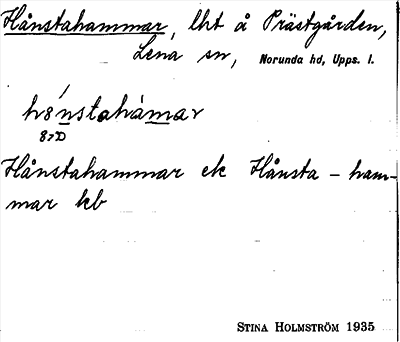 Hånstahammar, lht å Prästgården,
Lena sn, Norunda hd, Upps. l.
hånstahàmar
Hånstahammar ek Hånsta - ham-
mar kb
STINA HOLMSTRÖM 1935